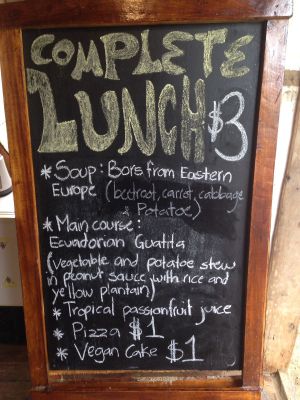 COMPLETE
LUNCH $3
* Soup: Bors from Eastern
Europe (beetroot, carrot, cabbage
& Potatoe)
* Main course:
Ecuadorian Guatita
(vegetable and potatoe stew
in peanut sauce with rice and
yellow plantain)
* Tropical passionfruit juice
* Pizza $1
* Vegan Cake $1